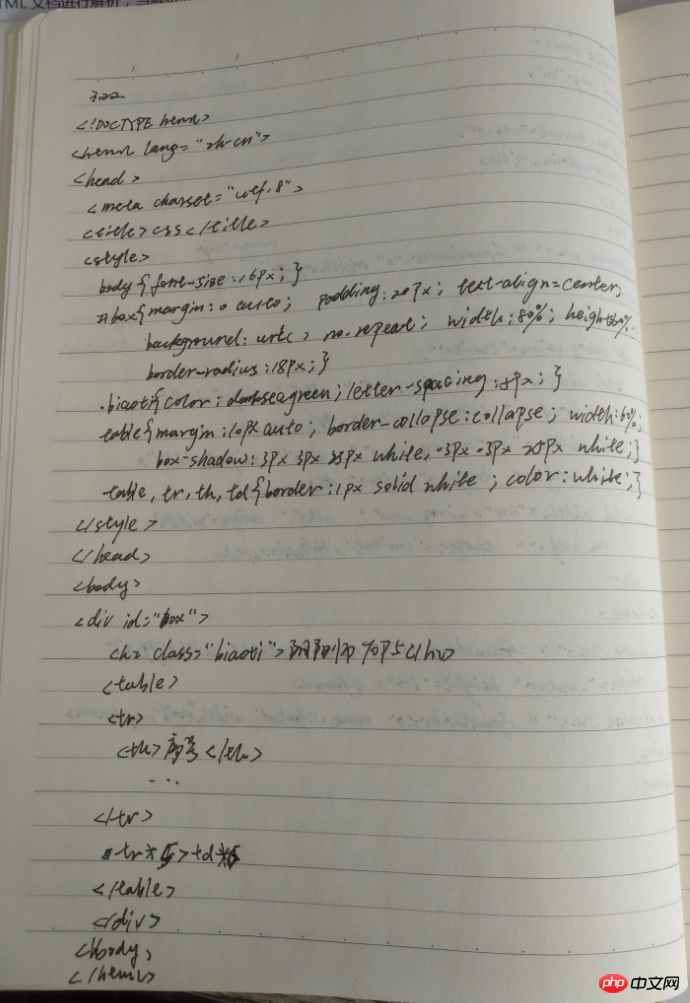 ML 文档进行解析，当解析
3.22
<!DOCTYPE html>
<html lang="zh-cn">
<head>
<meta charset="utf-8">
<title>css</title>
<style>
body{font-size:16px;}
#box{margin:0 auto; padding:20px; text-align=center;
background: url() no-repeat; width:80%; height:60%
border-radius:18px;}
.biaoti{color:darkseagreen;letter-spacing:8px;}
table{margin:10px auto; border-collapse:collapse; width:60%;
box-shadow:3px 3px 25px white,-3px -3px 25px white;}
table,tr,th,td{border:1px solid white; color:white;}
</style>
</head>
<body>
<div id="box">
<h2 class="biaoti"></h2>
<table>
<tr>
<th>序号</th>
...
</tr>
tr*5>td*6
</table>
</div>
<body>
</html>
php 中文网